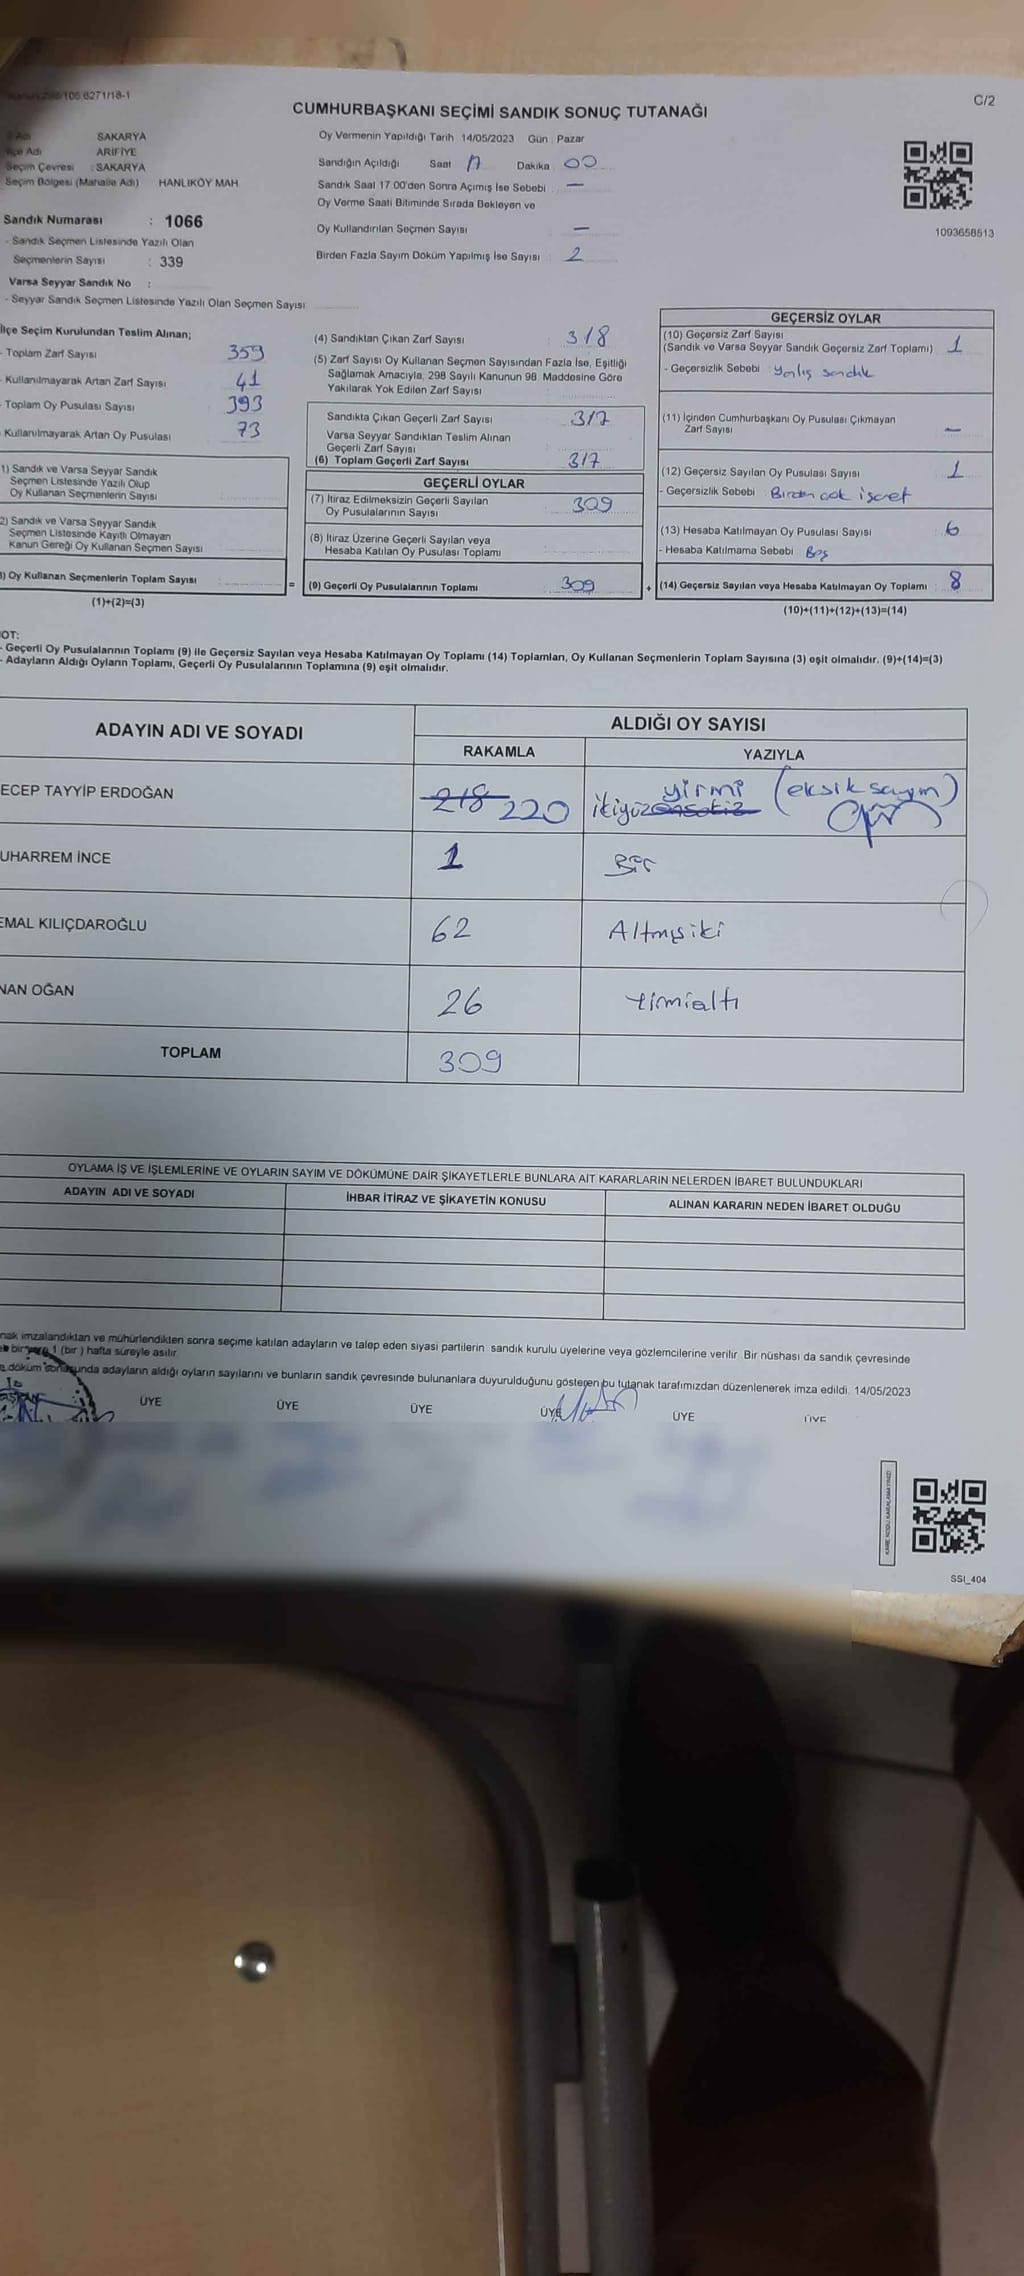 C/2
CUMHURBAŞKANI SEÇİMİ SANDIK SONUÇ TUTANAĞI
Adı SAKARYA
İlçe Adı ARİFİYE
Seçim Çevresi : SAKARYA
Seçim Bölgesi (Mahalle Adı) HANLIKÖY MAH
Sandık Numarası : 1066
- Sandık Seçmen Listesinde Yazılı Olan
Seçmenlerin Sayısı : 339
Varsa Seyyar Sandık No :
- Seyyar Sandık Seçmen Listesinde Yazılı Olan Seçmen Sayısı
Oy Vermenin Yapıldığı Tarih 14/05/2023 Gün : Pazar
Sandığın Açıldığı Saat 17 Dakika 00
Sandık Saat 17.00'den Sonra Açımış İse Sebebi —
Oy Verme Saati Bitiminde Sırada Bekleyen ve
Oy Kullandırılan Seçmen Sayısı —
Birden Fazla Sayım Döküm Yapılmış İse Sayısı : 2
1093658513
İlçe Seçim Kurulundan Teslim Alınan;
- Toplam Zarf Sayısı 359
- Kullanılmayarak Artan Zarf Sayısı 41
- Toplam Oy Pusulası Sayısı 393
Kullanılmayarak Artan Oy Pusulası 73
1) Sandık ve Varsa Seyyar Sandık
Seçmen Listesinde Yazılı Olup
Oy Kullanan Seçmenlerin Sayısı
2) Sandık ve Varsa Seyyar Sandık
Seçmen Listesinde Kayıtlı Olmayan
Kanun Gereği Oy Kullanan Seçmen Sayısı
) Oy Kullanan Seçmenlerin Toplam Sayısı =
(1)+(2)=(3)
(4) Sandıktan Çıkan Zarf Sayısı : 318
(5) Zarf Sayısı Oy Kullanan Seçmen Sayısından Fazla İse, Eşitliği
Sağlamak Amacıyla, 298 Sayılı Kanunun 98. Maddesine Göre
Yakılarak Yok Edilen Zarf Sayısı
Sandıkta Çıkan Geçerli Zarf Sayısı 317
Varsa Seyyar Sandıktan Teslim Alınan
Geçerli Zarf Sayısı
(6) Toplam Geçerli Zarf Sayısı 317
GEÇERLİ OYLAR
(7) İtiraz Edilmeksizin Geçerli Sayılan
Oy Pusulalarının Sayısı 309
(8) İtiraz Üzerine Geçerli Sayılan veya
Hesaba Katılan Oy Pusulası Toplamı
(9) Geçerli Oy Pusulalarının Toplamı 309 +
GEÇERSİZ OYLAR
(10) Geçersiz Zarf Sayısı
(Sandık ve Varsa Seyyar Sandık Geçersiz Zarf Toplamı) 1
- Geçersizlik Sebebi : Yanlış sandık
(11) İçinden Cumhurbaşkanı Oy Pusulası Çıkmayan
Zarf Sayısı —
(12) Geçersiz Sayılan Oy Pusulası Sayısı 1
- Geçersizlik Sebebi : Birden çok işaret
(13) Hesaba Katılmayan Oy Pusulası Sayısı 6
- Hesaba Katılmama Sebebi Boş
(14) Geçersiz Sayılan veya Hesaba Katılmayan Oy Toplamı : 8
(10)+(11)+(12)+(13)=(14)
OT:
- Geçerli Oy Pusulalarının Toplamı (9) ile Geçersiz Sayılan veya Hesaba Katılmayan Oy Toplamı (14) Toplamları, Oy Kullanan Seçmenlerin Toplam Sayısına (3) eşit olmalıdır. (9)+(14)=(3)
- Adayların Aldığı Oyların Toplamı, Geçerli Oy Pusulalarının Toplamına (9) eşit olmalıdır.
ADAYIN ADI VE SOYADI
ALDIĞI OY SAYISI
RAKAMLA YAZIYLA
ECEP TAYYİP ERDOĞAN 218 220 ikiyüzonsekiz yirmi (eksik sayım)
UHARREM İNCE 1 Bir
EMAL KILIÇDAROĞLU 62 Altmışiki
NAN OĞAN 26 Yirmialtı
TOPLAM 309
OYLAMA İŞ VE İŞLEMLERİNE VE OYLARIN SAYIM VE DÖKÜMÜNE DAİR ŞİKAYETLERLE BUNLARA AİT KARARLARIN NELERDEN İBARET BULUNDUKLARI
ADAYIN ADI VE SOYADI İHBAR İTİRAZ VE ŞİKAYETİN KONUSU ALINAN KARARIN NEDEN İBARET OLDUĞU
nak imzalandıktan ve mühürlendikten sonra seçime katılan adayların ve talep eden siyasi partilerin sandık kurulu üyelerine veya gözlemcilerine verilir. Bir nüshası da sandık çevresinde
bir yere 1 (bir ) hafta süreyle asılır.
döküm sonasunda adayların aldığı oyların sayılarını ve bunların sandık çevresinde bulunanlara duyurulduğunu gösteren bu tutanak tarafımızdan düzenlenerek imza edildi. 14/05/2023
ÜYE ÜYE ÜYE ÜYE ÜYE ÜYE
KARE KODU KARALAMAYINIZ!
SSI_404